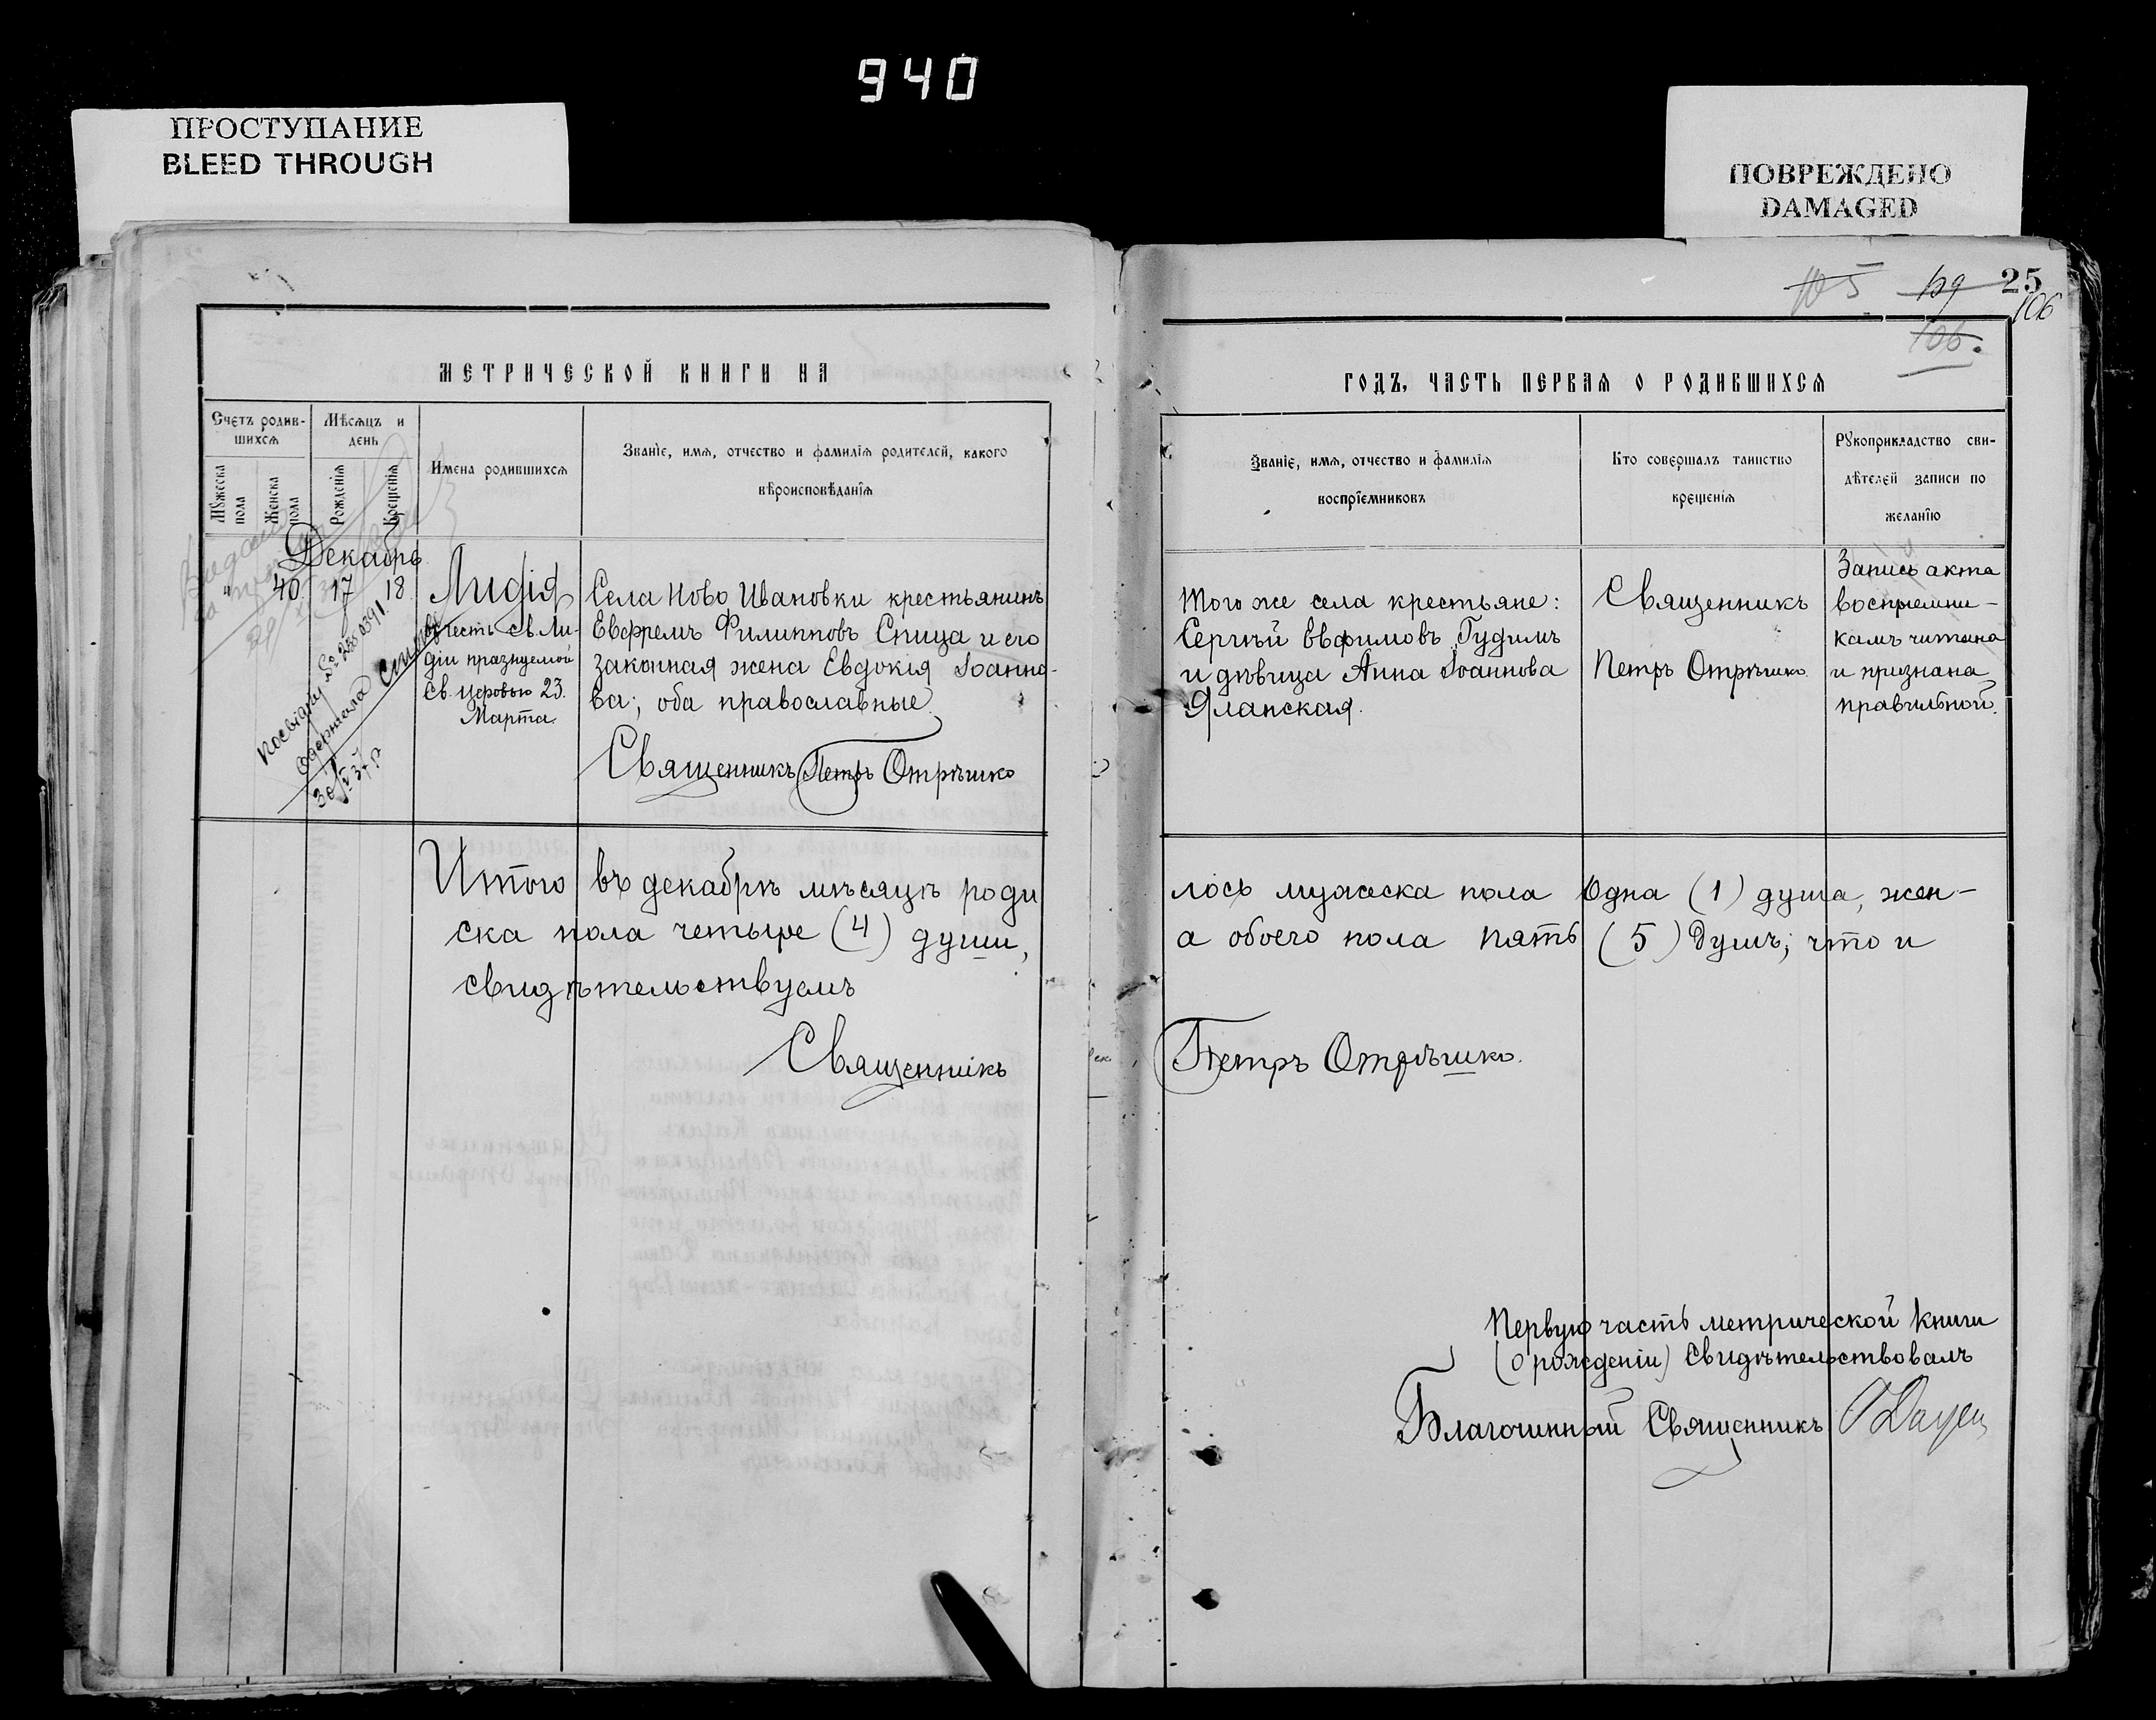 940
ПРОСТУПАНИЕ
BLEED THROUGH
ПОВРЕЖДЕНО
DAMAGED
105 109 25
106
106.
МЕТРИЧЕСКОЙ КНИГИ НА
ГОДЪ, ЧАСТЬ ПЕРВАЯ О РОДИВШИХСЯ
Счетъ родив-
шихся
Мѣсяцъ и
день
Мужеска
пола
Женска
пола
Рожденія
Крещенія
Имена родившихся
Званіе, имя, отчество и фамилія родителей, какого
вѣроисповѣданія
Званіе, имя, отчество и фамилія
воспріемниковъ
Кто совершалъ таинство
крещенія
Рукоприкладство сви-
дѣтелей записи по
желанію
Декабрь
" 40 17 18
Лидія
въ честь св. Ли-
діи празнуемой
Св. церовью 23.
Марта.
Села Ново Ивановки крестьянинъ
Евфремъ Филипповъ Спица и его
законная жена Евдокія Іоанно-
ва; оба православные.
Священникъ Петръ Отрѣшко
Того же села крестьяне:
Сергѣй Евфимовъ Гудимъ
и дѣвица Анна Іоаннова
Яланская.
Священникъ
Петръ Отрѣшко.
Запись акта
воспремни-
камъ читана
и признана
правильной.
Посвідку
одержала Спица
30/V 37 р
Итого въ декабрѣ мѣсяцѣ роди
лось мужеска пола одна (1) душа, жен-
ска пола четыре (4) души,
а обоего пола пять (5) душъ; что и
свидѣтельствуемъ
Священникъ
Петръ Отрѣшко.
Первую часть метрической книги
(о рожденіи) свидѣтельствовалъ
Благочинный Священникъ